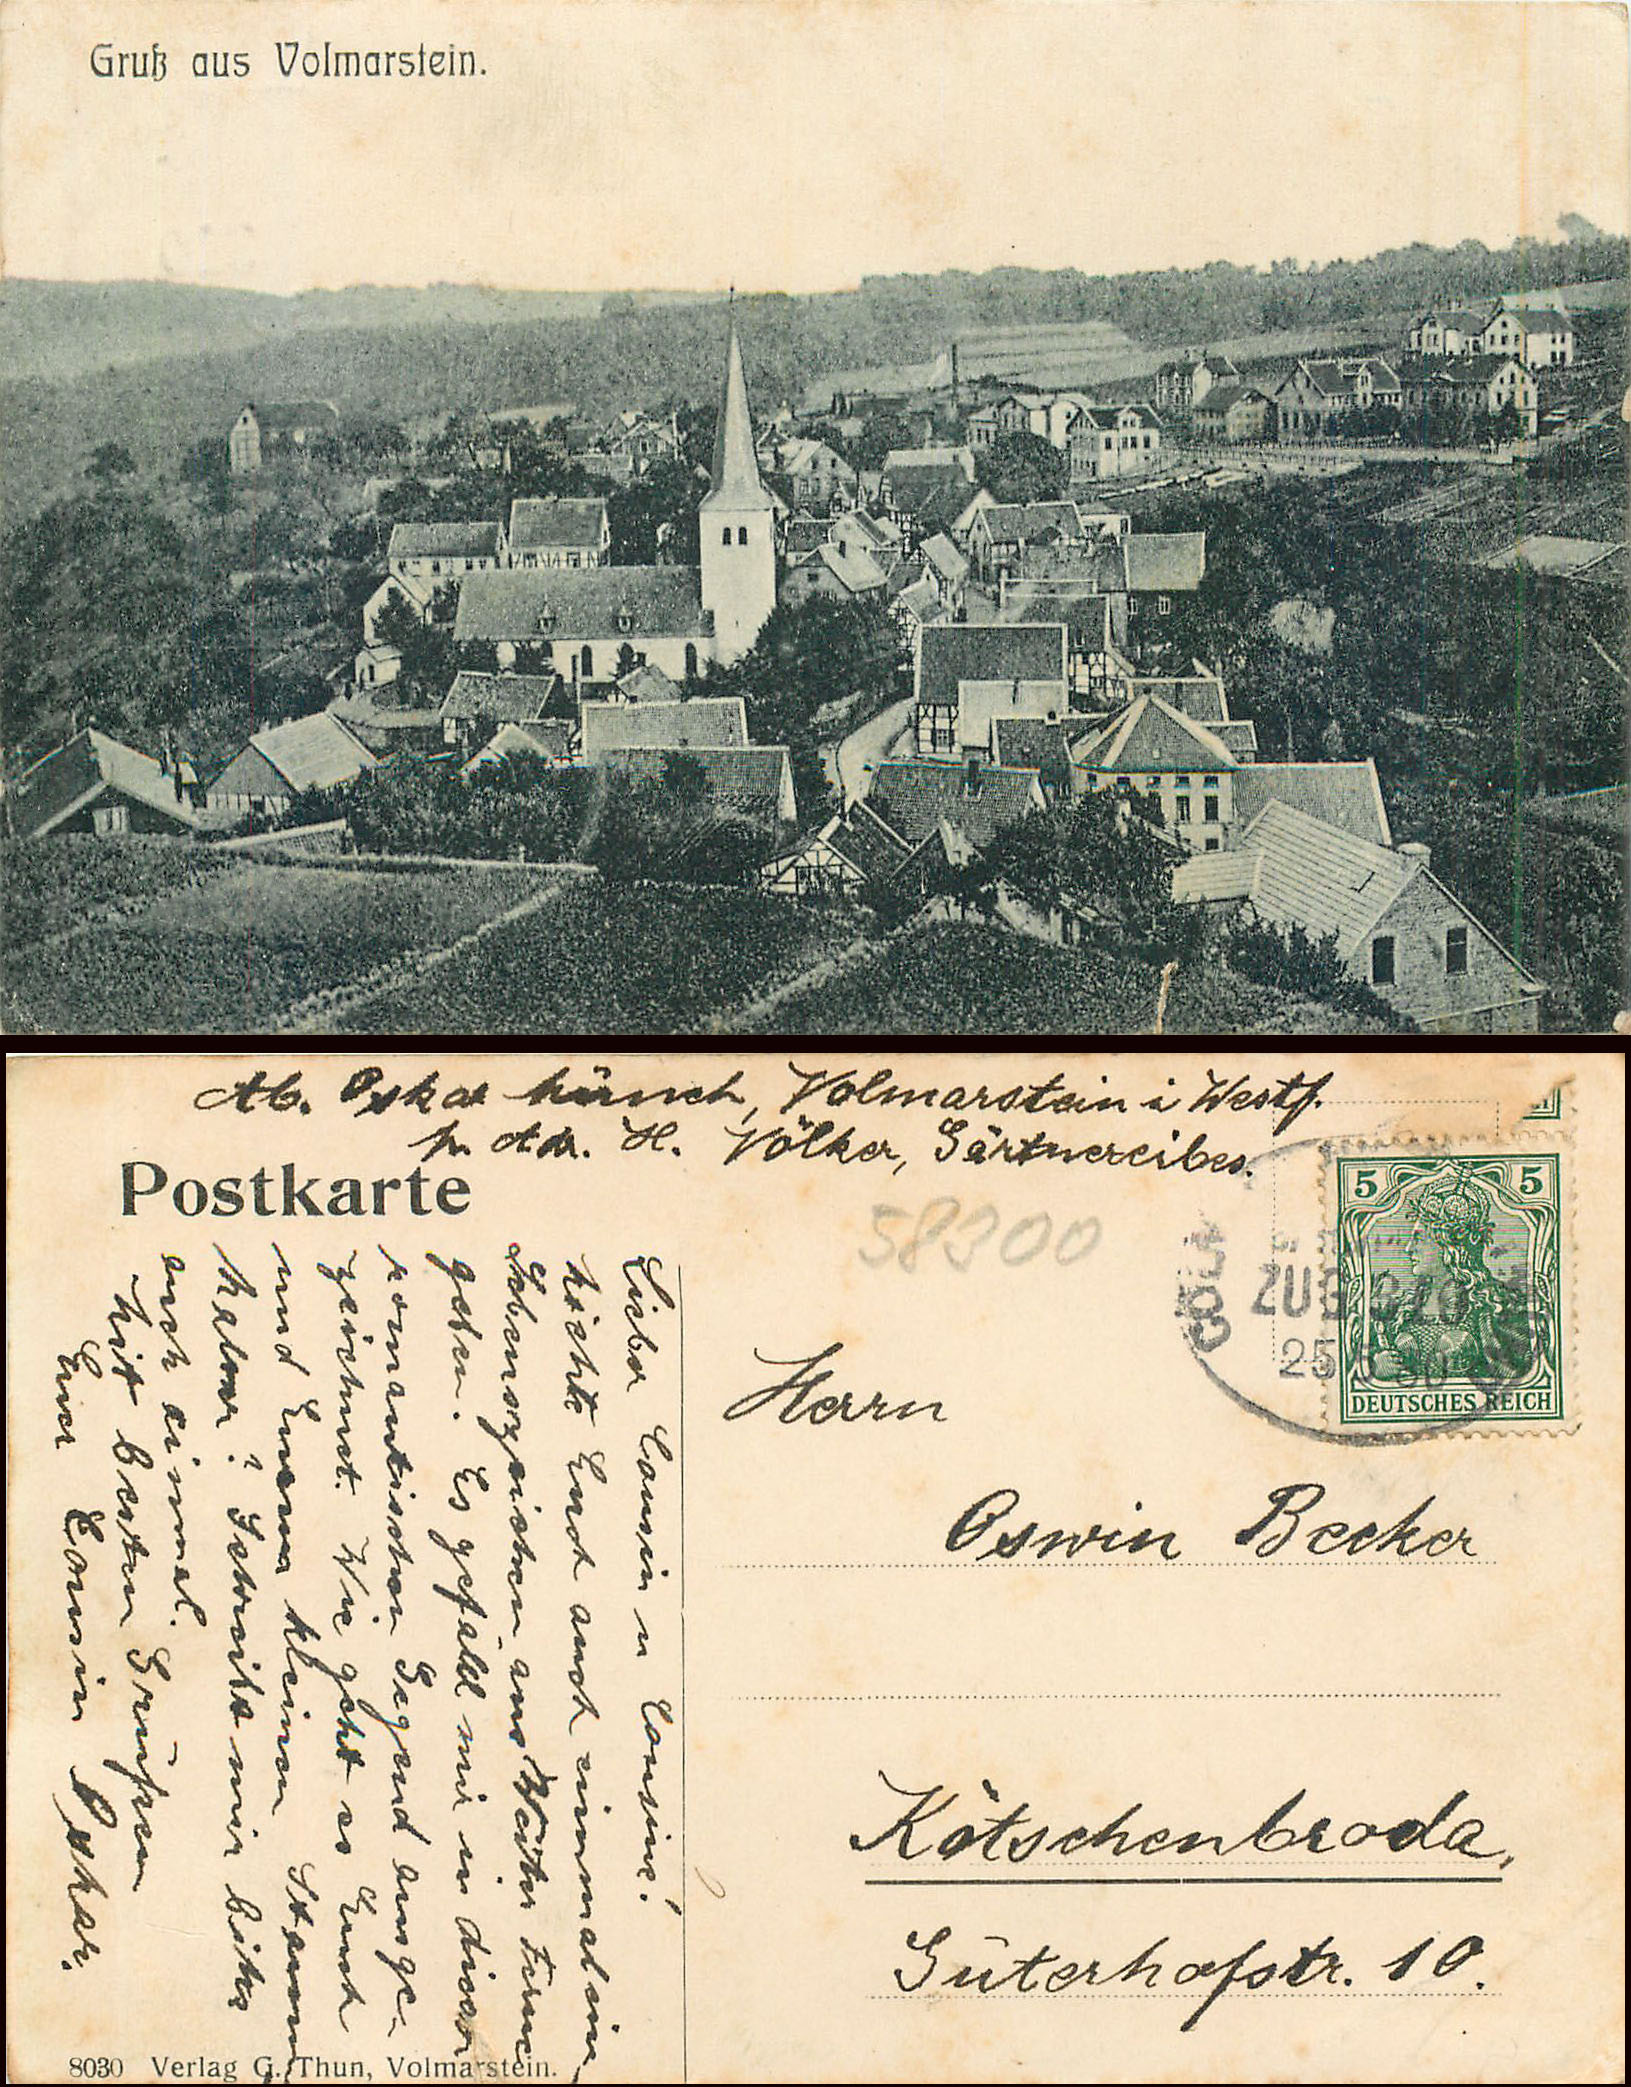 Gruß aus Volmarstein.
Ab. Oskar Münch, Volmarstein i Westf.
p. Adr. H. Völker, Gärtnereibes.
Postkarte
58300
5 5
CÖLN
ZUG
25
DEUTSCHES REICH
Herrn
Oswin Becker
Kötschenbroda,
Güterhofstr. 10.
Lieber Cousin u Cousine!
Möchte Euch auch einmal ein
Lebenszeichen aus weiter Ferne
geben. Es gefällt mir in dieser
romantischen Gegend ausge-
zeichnet. Wie geht es Euch
und Eurem kleinen Stamm
halter? Schreibt mir bitte
auch einmal.
Mit besten Grüßen
Euer Cousin Oskar.
8030 Verlag G. Thun, Volmarstein.